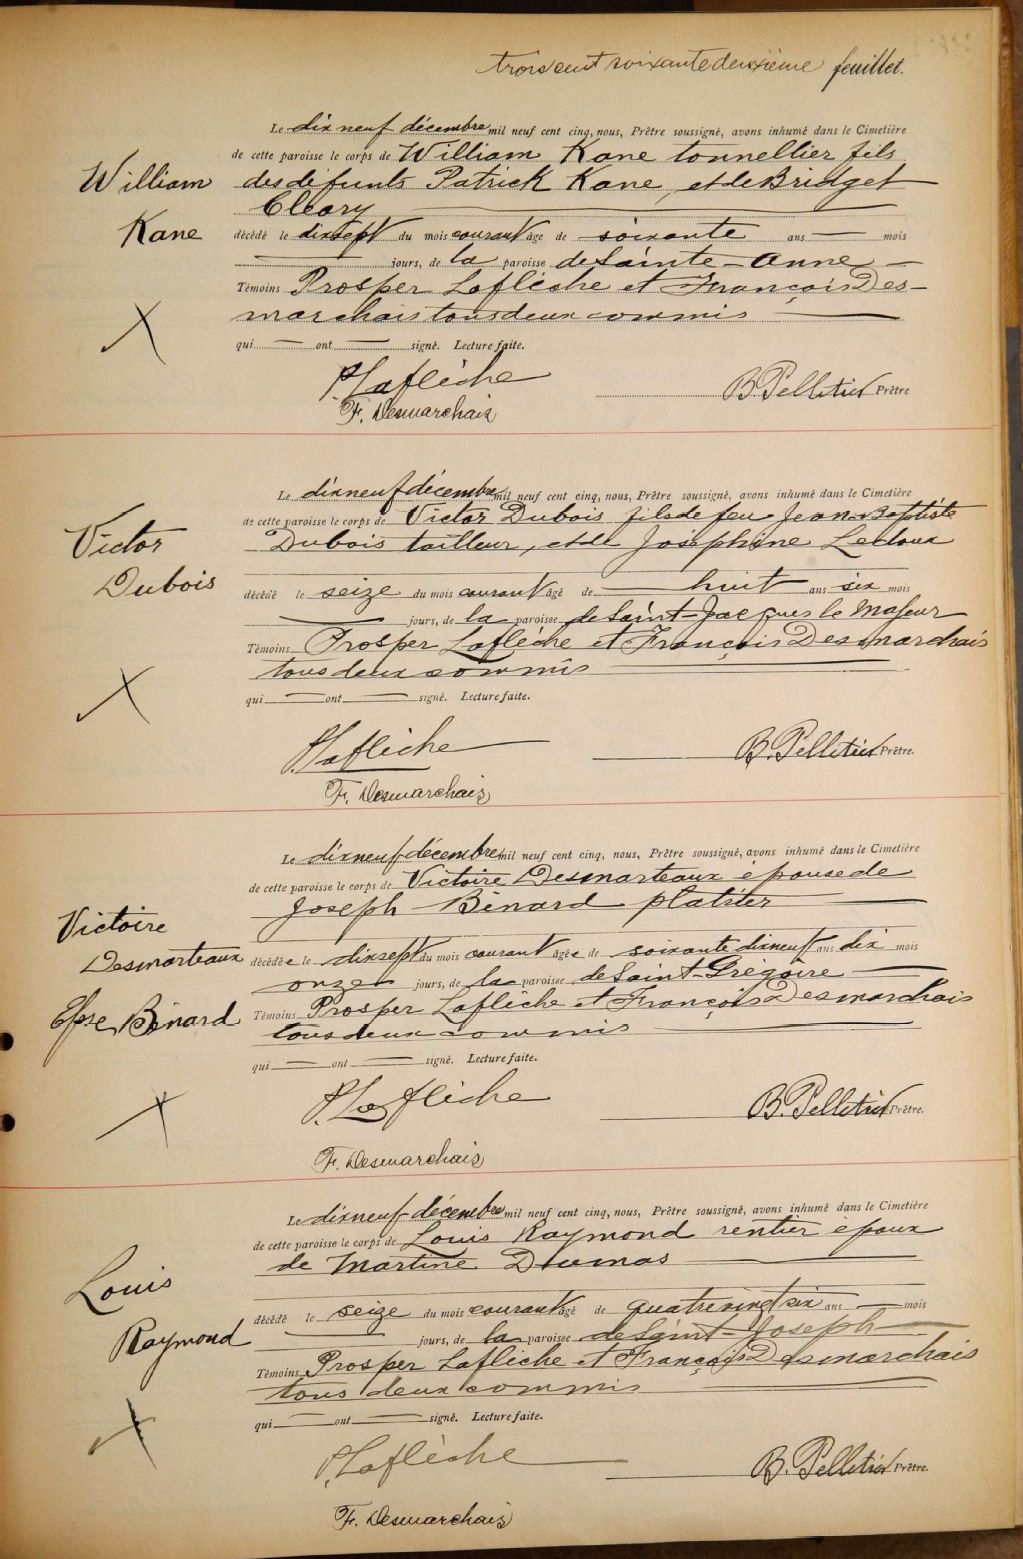 trois cent soixante deuxième feuillet.
Le dix neuf décembre mil neuf cent cinq, nous, Prêtre soussigné, avons inhumé dans le Cimetière
de cette paroisse le corps de William Kane tonnellier fils
William des défunts Patrick Kane, et de Bridget
Cleary
Kane décédé le dixsept du mois courant âgé de soixante ans — mois
— jours, de la paroisse de Sainte-Anne —
Témoins Prosper Laflèche et François Des-
marchais tous deux commis
qui — ont — signé. Lecture faite.
P. Laflèche
B. Pelletier Prêtre
F. Desmarchais
Le dixneuf décembre mil neuf cent cinq, nous, Prêtre soussigné, avons inhumé dans le Cimetière
de cette paroisse le corps de Victor Dubois fils de feu Jean-Baptiste
Victor Dubois tailleur, et de Joséphine Ledoux
Dubois décédé le seize du mois courant âgé de huit ans six mois
— jours, de la paroisse de Saint-Jacques le Majeur
Témoins Prosper Laflèche et François Desmarchais
tous deux commis
qui — ont — signé. Lecture faite.
P. Laflèche
B. Pelletier Prêtre.
F. Desmarchais
Le dixneuf décembre mil neuf cent cinq, nous, Prêtre soussigné, avons inhumé dans le Cimetière
de cette paroisse le corps de Victoire Desmarteaux épouse de
Victoire Joseph Bénard platrier
Desmarteaux décédée le dixsept du mois courant âgée de soixante dixneuf ans dix mois
onze jours, de la paroisse de Saint-Grégoire —
Epse Bénard Témoins Prosper Laflèche et François Desmarchais
tous deux commis
qui — ont — signé. Lecture faite.
P. Laflèche
B. Pelletier Prêtre.
F. Desmarchais
Le dixneuf décembre mil neuf cent cinq, nous, Prêtre soussigné, avons inhumé dans le Cimetière
de cette paroisse le corps de Louis Raymond rentier époux
Louis de Martine Dumas
décédé le seize du mois courant âgé de quatrevingt six ans — mois
Raymond — jours, de la paroisse de Saint-Joseph
Témoins Prosper Laflèche et François Desmarchais
tous deux commis
qui — ont — signé. Lecture faite.
P. Laflèche
B. Pelletier Prêtre.
F. Desmarchais